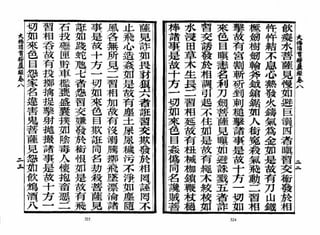 飲燒水菩薩見慢如避巨溺四者瞋習交衝發於相
忤忤結不息心熱發火鑄氣為金如是故有刀山鐵
橛劍樹劍輪斧鉞鎗鋸如人銜冤殺氣飛動二習相
擊故有宮割斬斫剉刺槌擊諸事是故十方一切如
來色目瞋恚名利刀劍菩薩見瞋如避誅戮五者詐
習交誘發於相調引起不住如是故有繩木絞校如
水浸田草木生長二習相延故有杻械枷鎖鞭杖檛
棒諸事是故十方一切如來色目奸偽同名讒賊菩
324
薩見詐如畏豺狼六者誑習交欺發於相罔誣罔不
止飛心造姦如是故有塵土屎尿穢污不淨如塵隨
風各無所見二習相加故有沒溺騰擲飛墜漂淪諸
事是故十方一切如來色目欺誑同名劫殺菩薩見
誑如踐蛇虺七者怨習交嫌發於銜恨如是故有飛
石投礰匣貯車檻甕盛囊撲如陰毒人懷抱畜惡二
習相吞故有投擲擒捉擊射拋撮諸事是故十方一
切如來色目怨家名違害鬼菩薩見怨如飲鴆酒八